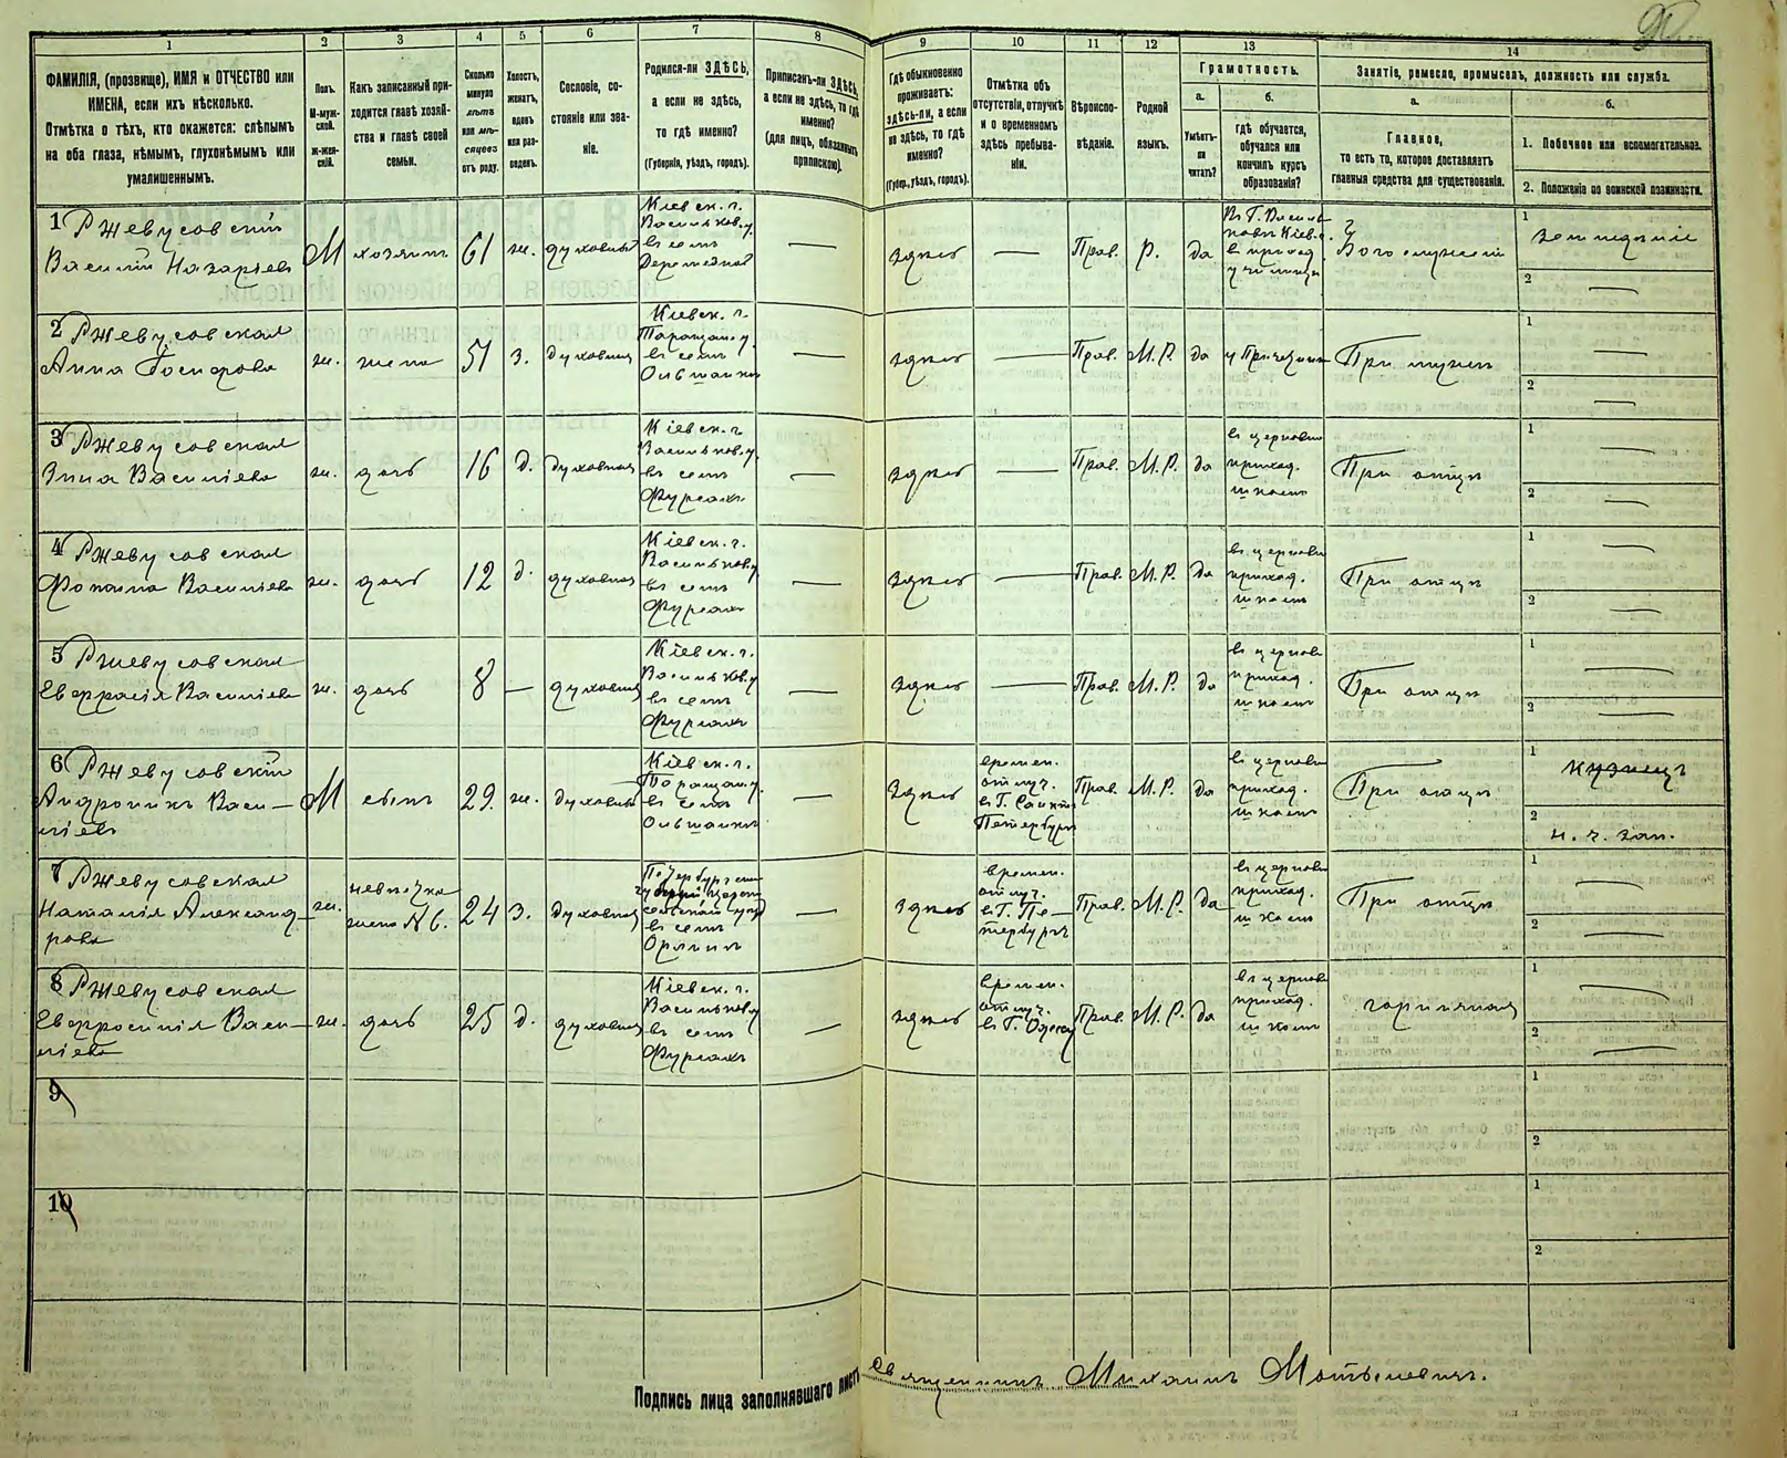 1 2 3 4 5 6 7 8 9 10 11 12 13 14
ФАМИЛІЯ, (прозвище), ИМЯ и ОТЧЕСТВО или
ИМЕНА, если ихъ нѣсколько.
Отмѣтка о тѣхъ, кто окажется: слѣпымъ
на оба глаза, нѣмымъ, глухонѣмымъ или
умалишеннымъ.
Полъ.
М-муж-
ской.
Ж-жен-
скій.
Какъ записанный при-
ходится главѣ хозяй-
ства и главѣ своей
семьи.
Сколько
минуло
лѣтъ
или мѣ-
сяцевъ
отъ роду.
Холостъ,
женатъ,
вдовъ
или раз-
веденъ.
Сословіе, со-
стояніе или зва-
ніе.
Родился-ли ЗДѢСЬ,
а если не здѣсь,
то гдѣ именно?
(Губернія, уѣздъ, городъ).
Приписанъ-ли ЗДѢСЬ,
а если не здѣсь, то гдѣ
именно?
(для лицъ, обязанныхъ
припискою).
Гдѣ обыкновенно
проживаетъ:
здѣсь-ли, а если
не здѣсь, то гдѣ
именно?
(Губер., уѣздъ, городъ).
Отмѣтка объ
отсутствіи, отлучкѣ
и о временномъ
здѣсь пребыва-
ніи.
Вѣроиспо-
вѣданіе.
Родной
языкъ.
Грамотность.
а.
Умѣетъ-
ли
читать?
б.
гдѣ обучается,
обучался или
кончилъ курсъ
образованія?
Занятіе, ремесло, промыселъ, должность или служба.
а.
Главное,
то есть то, которое доставляетъ
главныя средства для существованія.
б.
1. Побочное или вспомогательное.
2. Положеніе по воинской повинности.
1 Ржевусовскій
Василій Назаріевъ
М
хозяинъ
61
ж.
духовный
Кіевск. г.
Васильков. у.
въ селѣ
—
здѣсь
—
Прав.
Р.
да
в приход.
училищѣ
Богослуженіе
1 земледѣліе
2 —
2 Ржевусовская
Анна
ж.
жена
51
з.
духовная
Кіевск. г.
Таращан. у.
въ селѣ
Ольшанкѣ
—
здѣсь
—
Прав.
М. Р.
да
При мужѣ
1 —
2 —
3 Ржевусовская
Анна Василіева
ж.
дочь
16
д.
духовная
Кіевск. г.
Васильков. у.
въ селѣ
Фурсахъ
—
здѣсь
—
Прав.
М. Р.
да
въ церковно
приход.
школѣ
При отцѣ
1 —
2 —
4 Ржевусовская
Василіева
ж.
дочь
12
д.
духовная
Кіевск. г.
Васильков. у.
въ селѣ
Фурсахъ
—
здѣсь
—
Прав.
М. Р.
да
въ церковно
приход.
школѣ
При отцѣ
1 —
2 —
5 Ржевусовская
Евфрасія Василіева
ж.
дочь
8
—
духовная
Кіевск. г.
Васильков. у
въ селѣ
Фурсахъ
—
здѣсь
—
Прав.
М. Р.
да
въ церковно
приход.
школѣ
При отцѣ
1 —
2 —
6 Ржевусовскій
Андроникъ Васи-
ліевъ
М
сынъ
29.
ж.
духовный
Кіевск. г.
Таращан. у.
въ селѣ
Ольшанкѣ
—
здѣсь
времен.
отлуч.
в Г. Санктъ
Петербургъ
Прав.
М. Р.
да
въ церковно
приход.
школѣ
При отцѣ
1 кузнецъ
2 н. ч. зап.
7 Ржевусовская
Наталія Александ-
рова
ж.
невѣстка
жена №6.
24
з.
духовная
въ селѣ
—
здѣсь
времен.
отлуч.
в Г. Пе-
тербургъ
Прав.
М. Р.
да
въ церковно
приход.
школѣ
При отцѣ
1 —
2 —
8 Ржевусовская
Евфросинія Васи-
ліева
ж.
дочь
25
д.
духовная
Кіевск. г.
Васильков. у
въ селѣ
Фурсахъ
—
здѣсь
времен.
отлуч.
в Г. Одессу
Прав.
М. Р.
да
въ церковно
приход.
школѣ
горничная
1 —
2 —
9
1
2
10
1
2
Подпись лица заполнявшаго листъ Священникъ Михаилъ